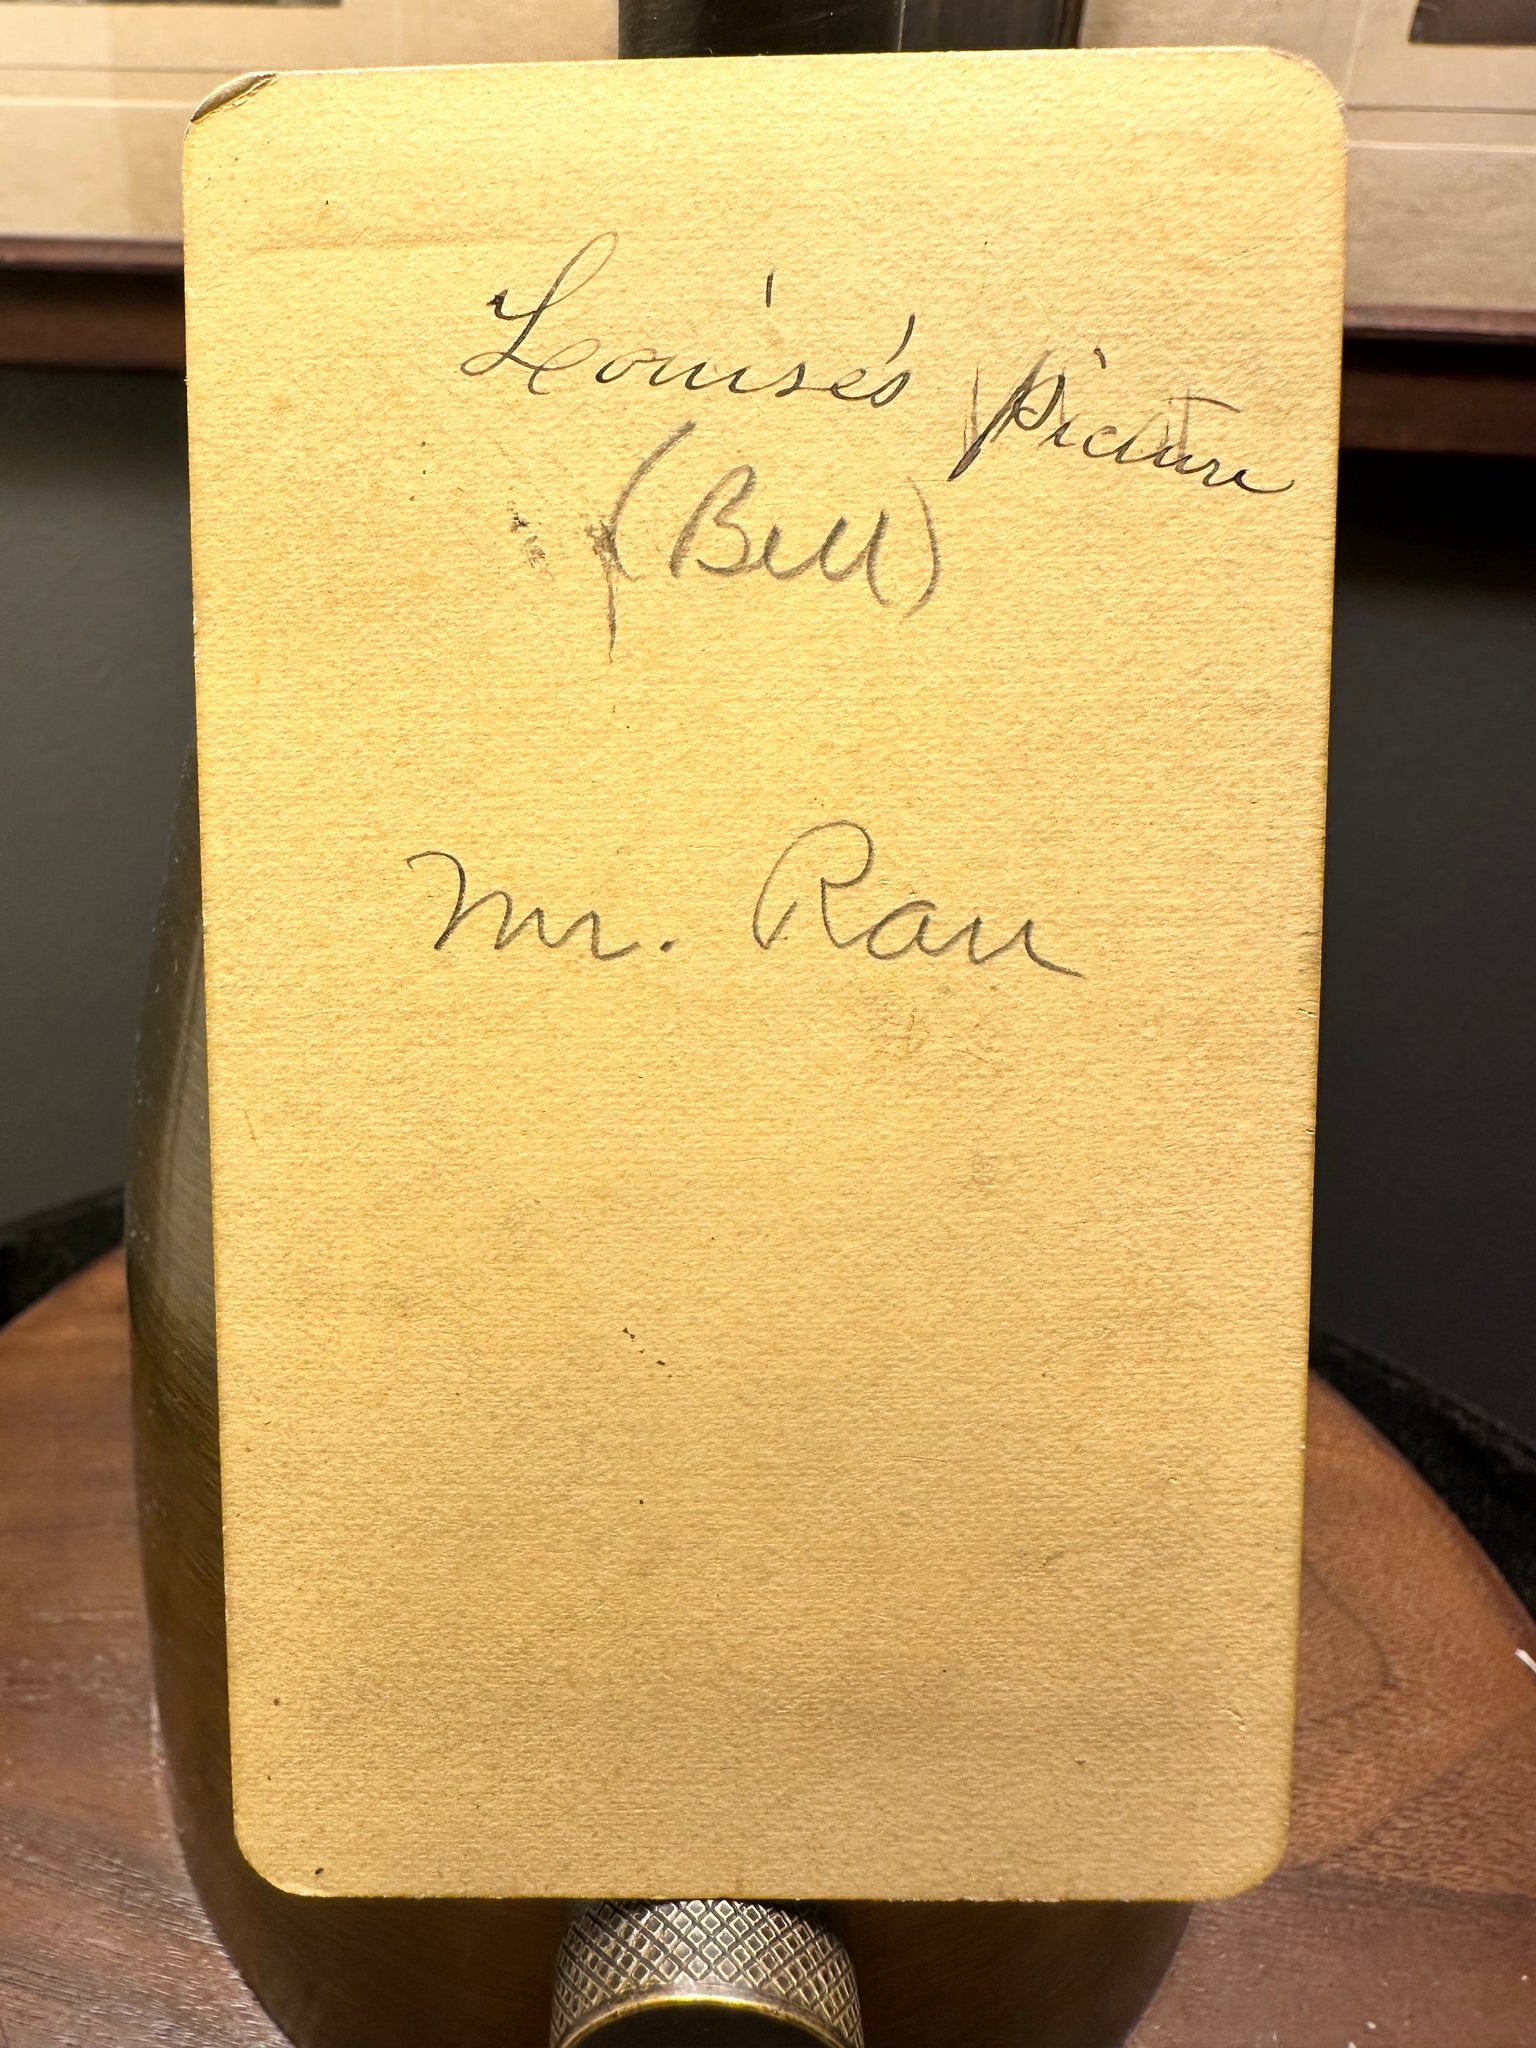 Louise's picture
(Bell)
Mr. Rau